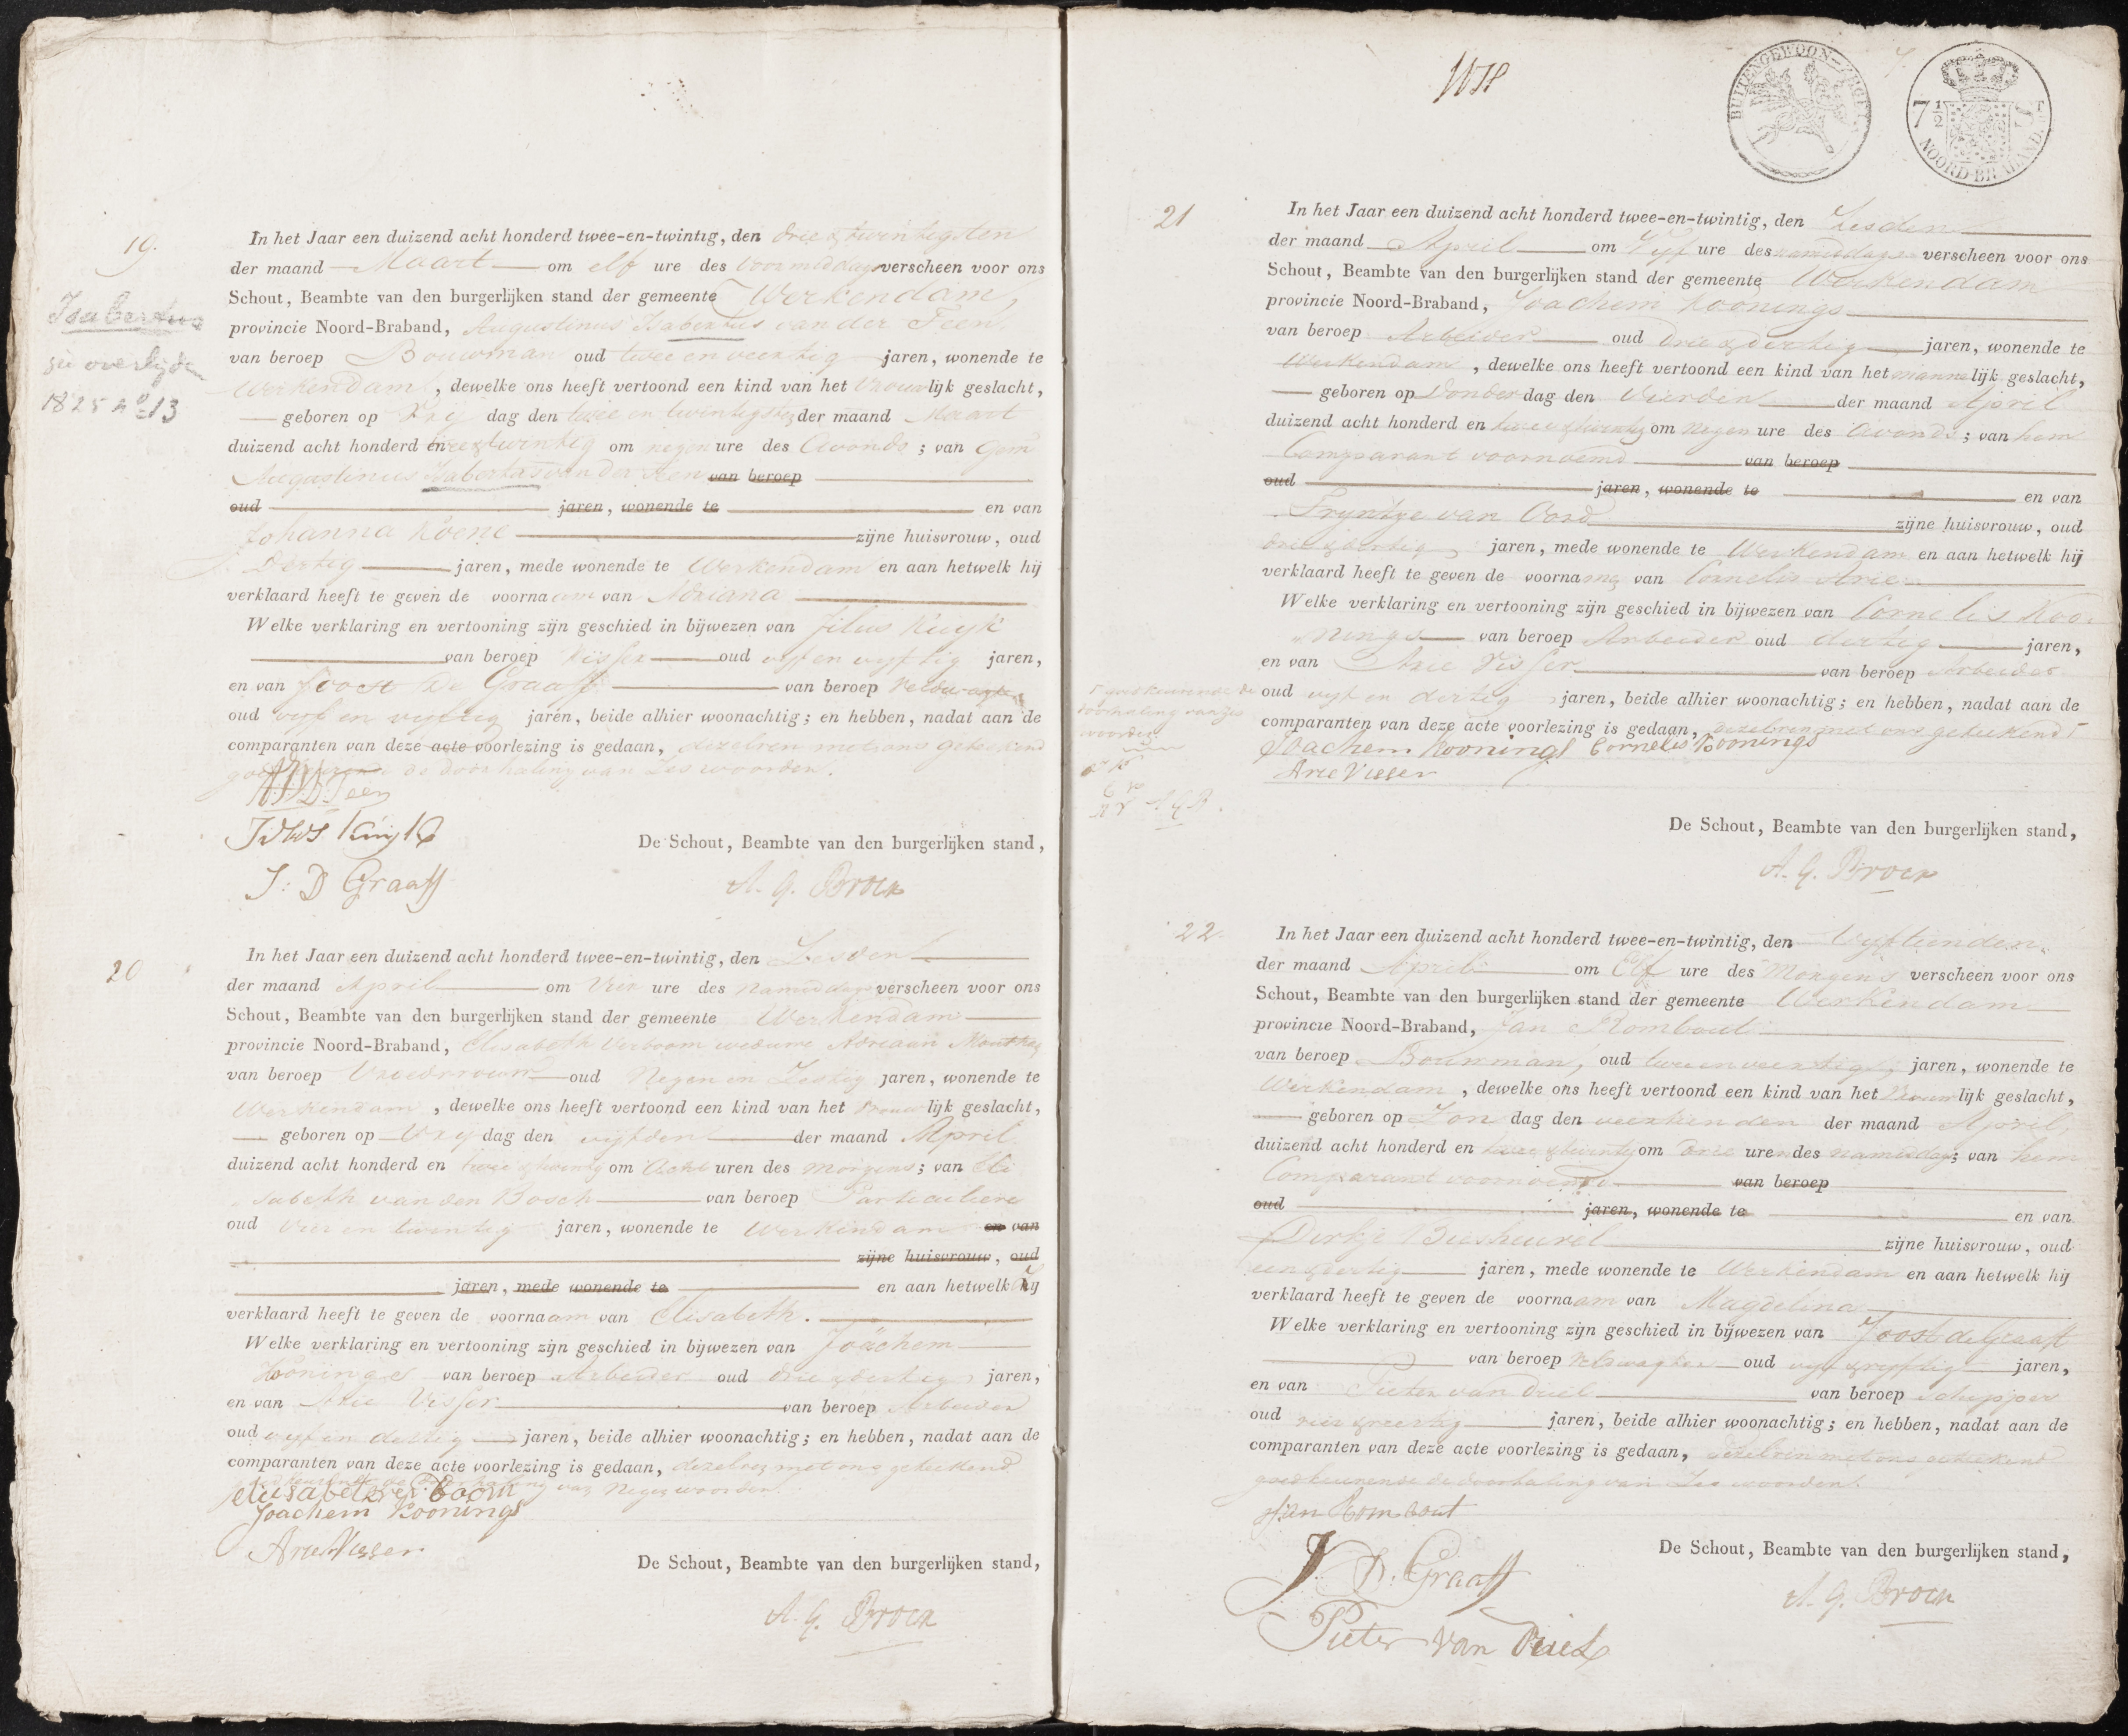 19.
Isabertus
zie overlijden
1825 No 13
In het Jaar een duizend acht honderd twee-en-twintig, den drie & twintigsten
der maand Maart om elf ure des voormiddags verscheen voor ons
Schout, Beambte van den burgerlijken stand der gemeente Werkendam,
provincie Noord-Braband, Augustinus Isabertus van der Teen
van beroep Bouwman oud twee en veertig jaren, wonende te
Werkendam, dewelke ons heeft vertoond een kind van het vrouwlijk geslacht,
geboren op Vry dag den twee en twintigsten der maand Maart
duizend acht honderd en twee & twintig om negen ure des Avonds; van gem
Augustinus Isabertus van der Teen van beroep
oud jaren, wonende te en van
Johanna Koene zijne huisvrouw, oud
Dertig jaren, mede wonende te Werkendam en aan hetwelk hij
verklaard heeft te geven de voornaam van Adriana
Welke verklaring en vertooning zijn geschied in bijwezen van Filus Kuyk
van beroep Visser oud vyf en vyftig jaren,
en van Joost De Graaff van beroep veldwagter
oud vyf en vyftig jaren, beide alhier woonachtig; en hebben, nadat aan de
comparanten van deze acte voorlezing is gedaan, dezelven met ons geteekend
goedkeurende de doorhaling van Zes woorden.
J: D Graaff
De Schout, Beambte van den burgerlijken stand,
A. G. Broek
20
In het Jaar een duizend acht honderd twee-en-twintig, den Zesden
der maand April om Vier ure des namiddags verscheen voor ons
Schout, Beambte van den burgerlijken stand der gemeente Werkendam
provincie Noord-Braband, Elisabeth Verboom weduwe Adriaan
van beroep Vroedvrouw oud Negen en Zestig jaren, wonende te
Werkendam, dewelke ons heeft vertoond een kind van het vrouwlijk geslacht,
geboren op Vrydag den vyfden der maand April
duizend acht honderd en twee & twintig om Acht uren des morgens; van Eli
sabeth van den Bosch van beroep Particuliere
oud Vier en twintig jaren, wonende te Werkendam en van
zijne huisvrouw, oud
jaren, mede wonende te en aan hetwelk Zij
verklaard heeft te geven de voornaam van Elisabeth.
Welke verklaring en vertooning zijn geschied in bijwezen van Joachem
Kooninge van beroep Arbeider oud drie & dertig jaren,
en van Arie Visser van beroep Arbeider
oud vyf en dertig jaren, beide alhier woonachtig; en hebben, nadat aan de
comparanten van deze acte voorlezing is gedaan, dezelven met ons geteekend
goedkeurende de doorhaling van Negen woorden.
elisabet ver boom
Joachem Koonings
Arie Visser
De Schout, Beambte van den burgerlijken stand,
A. G. Broek
BUITENGEWOON-
7 1/2
NOORD-BRABAND.
21
In het Jaar een duizend acht honderd twee-en-twintig, den Zesden
der maand April om Vyf ure des namiddags verscheen voor ons
Schout, Beambte van den burgerlijken stand der gemeente Werkendam
provincie Noord-Braband, Joachem Koonings
van beroep Arbeider oud drie & dertig jaren, wonende te
Werkendam, dewelke ons heeft vertoond een kind van het mannelijk geslacht,
geboren op Donderdag den Vierden der maand April
duizend acht honderd en twee & twintig om Negen ure des Avonds; van hem
Comparant voornoemd van beroep
oud jaren, wonende te en van
Pryntje van Oord zijne huisvrouw, oud
drie & dertig jaren, mede wonende te Werkendam en aan hetwelk hij
verklaard heeft te geven de voorname van Cornelis Arie
Welke verklaring en vertooning zijn geschied in bijwezen van Cornelis Koo
nings van beroep Arbeider oud dertig jaren,
en van Arie Visser van beroep Arbeider
oud vyf en dertig jaren, beide alhier woonachtig; en hebben, nadat aan de
comparanten van deze acte voorlezing is gedaan, dezelven met ons geteekend
goedkeurende de
doorhaling van zes
woorden
A G B.
Joachem Koonings Cornelis Koonings
Arie Visser
De Schout, Beambte van den burgerlijken stand,
A. G. Broek
22.
In het Jaar een duizend acht honderd twee-en-twintig, den Vyftienden
der maand April om Elf ure des Morgens verscheen voor ons
Schout, Beambte van den burgerlijken stand der gemeente Werkendam
provincie Noord-Braband, Jan Rombout
van beroep Bouwman, oud twee en veertig jaren, wonende te
Werkendam, dewelke ons heeft vertoond een kind van het Vrouwlijk geslacht,
geboren op Zon dag den veertienden der maand April
duizend acht honderd en twee & twintig om Drie uren des namiddags; van hem
Comparant voornoemd van beroep
oud jaren, wonende te en van
Dirkje Biesheuvel zijne huisvrouw, oud
een & veertig jaren, mede wonende te Werkendam en aan hetwelk hij
verklaard heeft te geven de voornaam van Magdelina
Welke verklaring en vertooning zijn geschied in bijwezen van Joost de Graaff
van beroep veldwagter oud vyf & vyftig jaren,
en van Pieter van Driel van beroep schipper
oud vier & veertig jaren, beide alhier woonachtig; en hebben, nadat aan de
comparanten van deze acte voorlezing is gedaan, dezelven met ons geteekend
goedkeurende de doorhaling van Zes woorden.
Jan Rom bout
J. D. Graaff
Pieter van Driel
De Schout, Beambte van den burgerlijken stand,
A. G. Broek